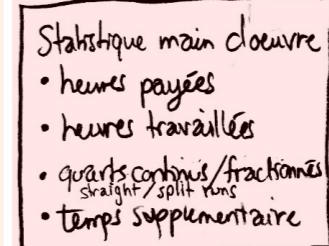 Statistique main d'oeuvre
• heures payées
• heures travaillées
• quarts continus/fractionnés
straight/split runs
• temps supplementaire